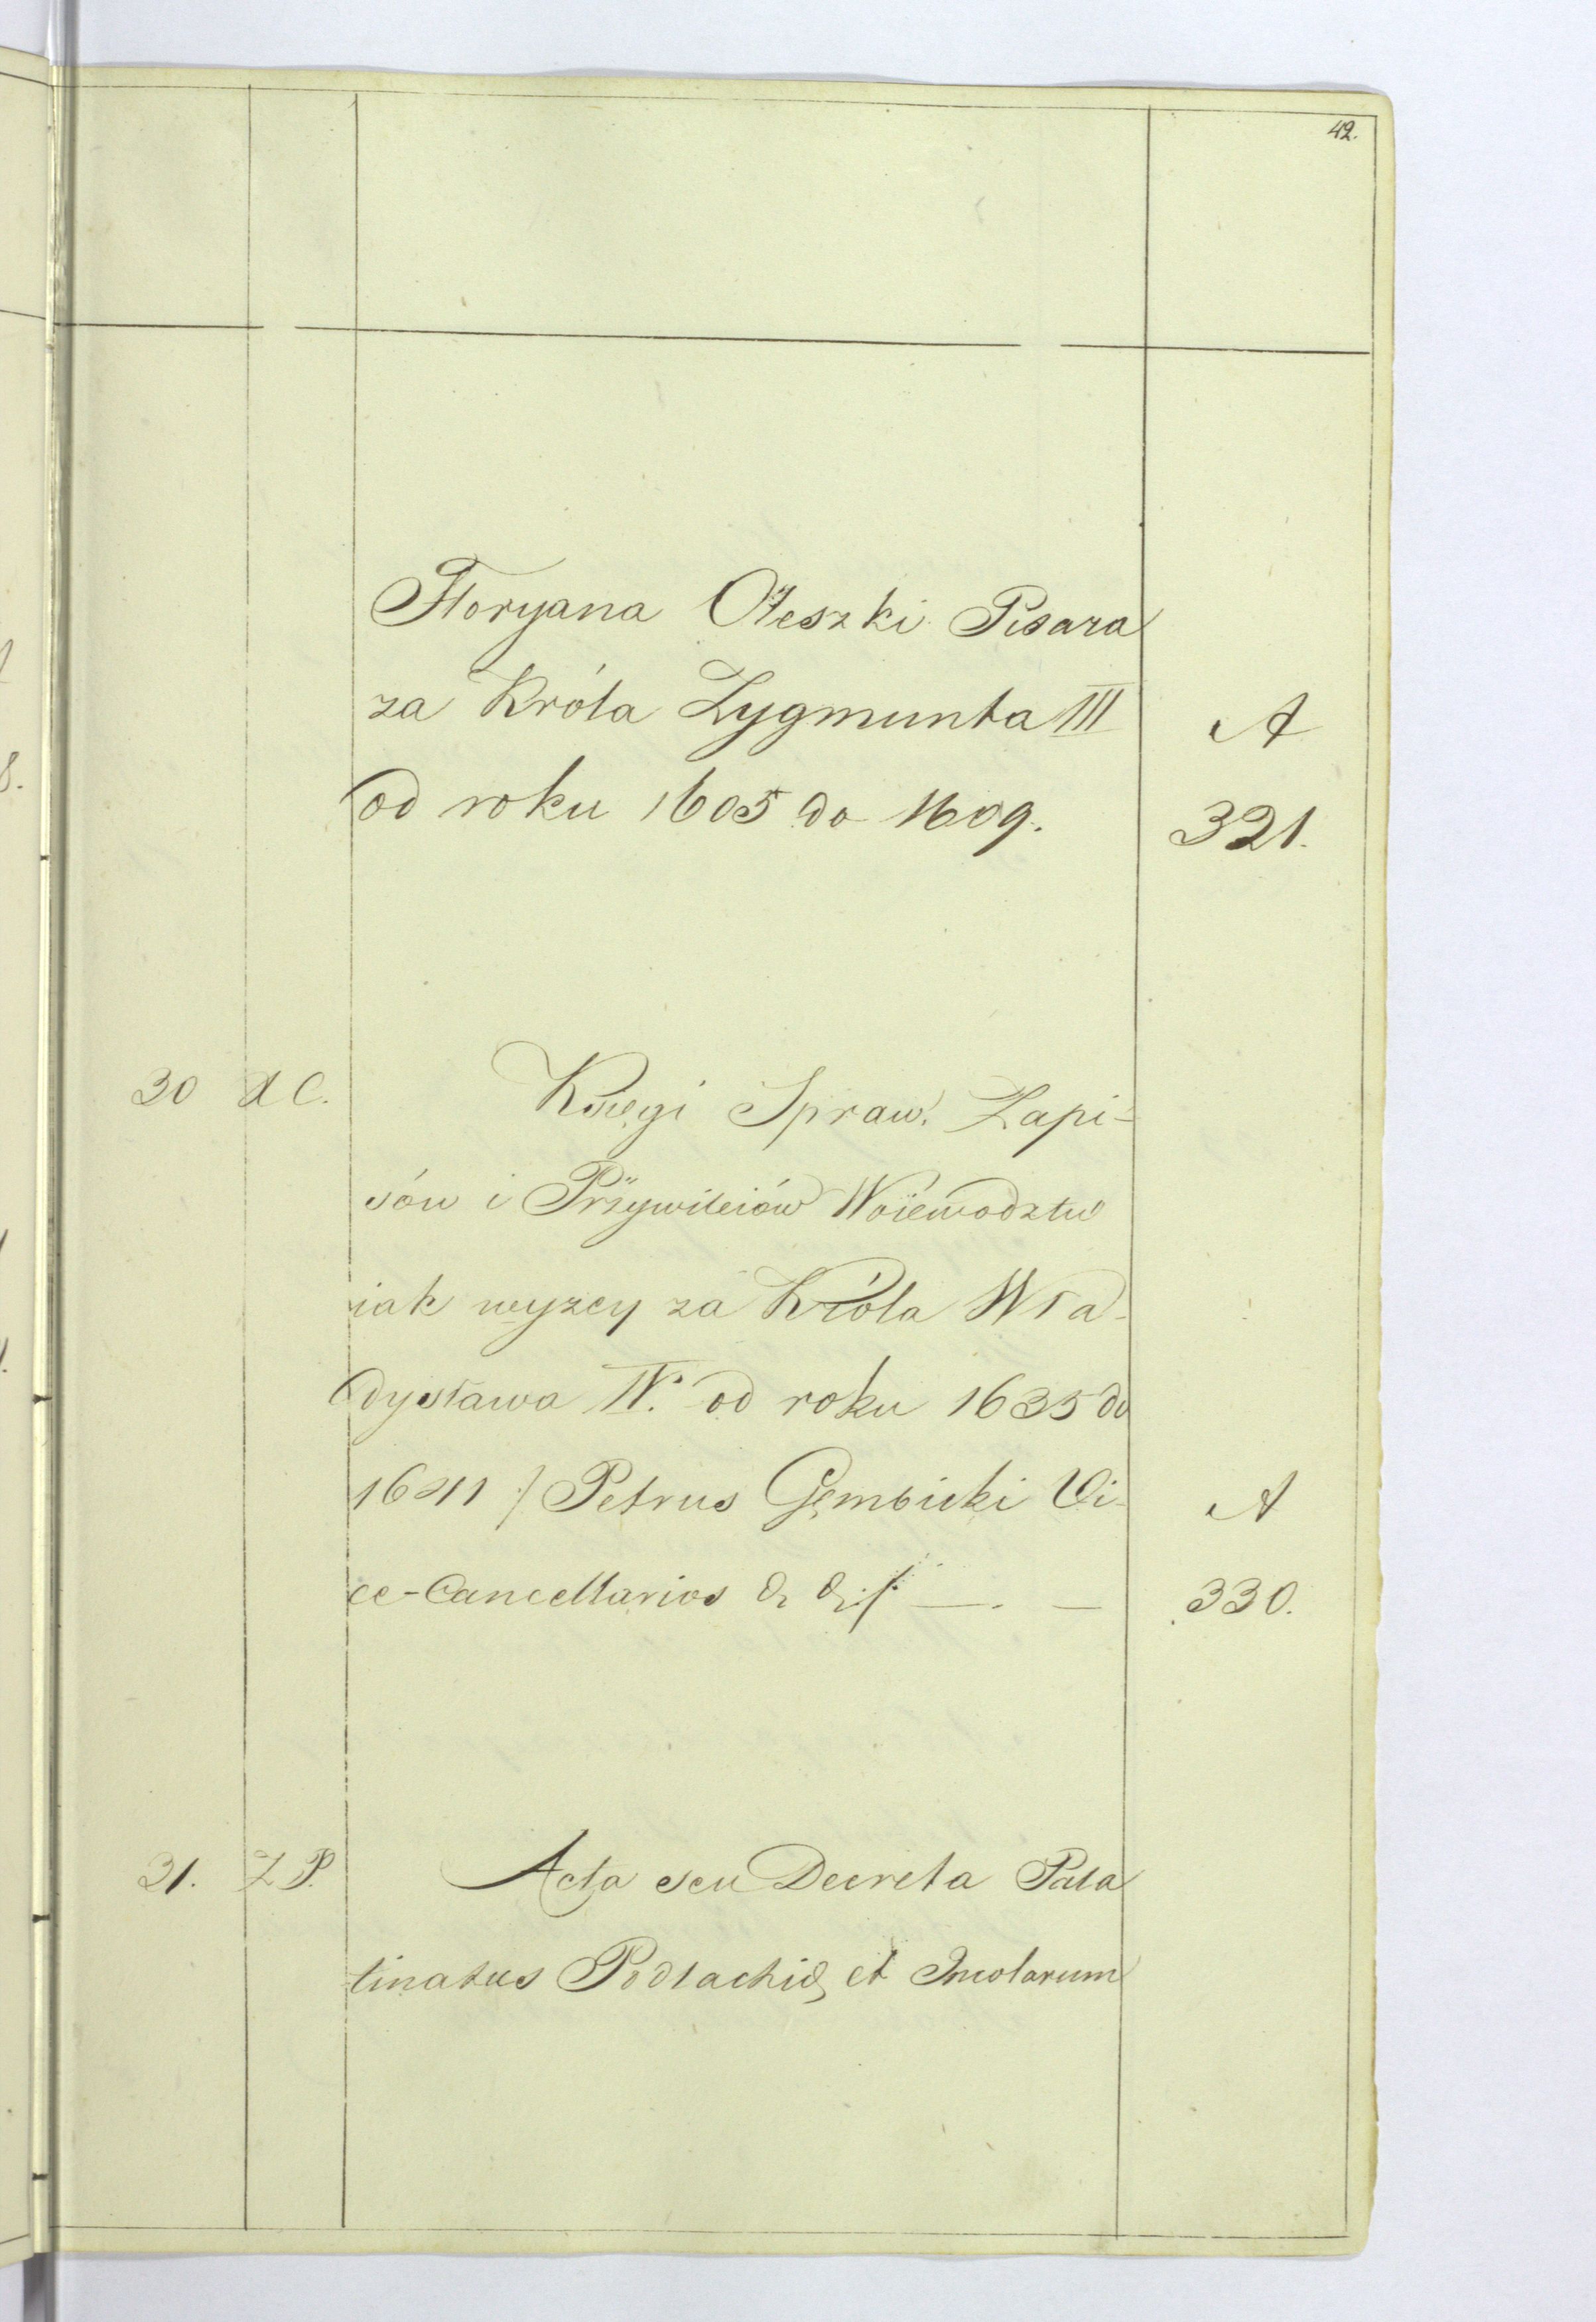 42.
Floryana Oleszki Pisara
za Króla Zygmunta III A
od roku 1605 do 1609. 321.
30 A C. Księgi Spraw. Zapi-
sów i Przywileiów Woiewodztw
iak wyzey za Króla Wła-
dysława IV. od roku 1635 do
1641 /: Petrus Gęmbicki Vi- A
ce-Cancellarios & &:/ —. — 330.
31. Z P. Acta seu Decreta Pala
tinatus Podlachię et Incolarum